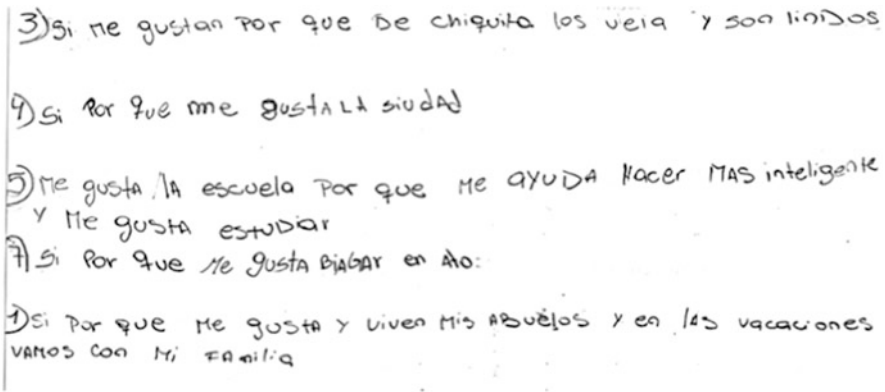 3) Si me gustan Por que De chiquita los veia y son linDos
4) Si Por que me gustA LA siudAd
5) Me gustA lA escuela Por que Me ayuDA Hacer MAS inteligente
y Me gustA estuDiar
7) Si Por que Me gustA BiAGAr en
1) Si Por que Me gustA y viven Mis ABuelos y en lAs vacaciones
VAMOS con Mi FAmilia